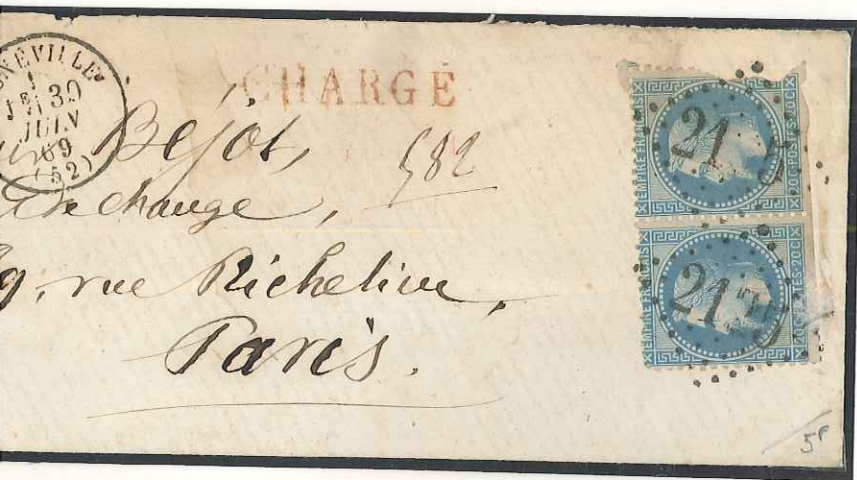 NÉVILLE
CHARGÉ
1
30
JUIN
69
(52)
Béjot,
582
de change,
9, rue Richelieu,
Paris.
EMPIRE FRANÇAIS
20C POSTES 20C
21
EMPIRE FRANÇAIS
20C POSTES 20C
21
5F